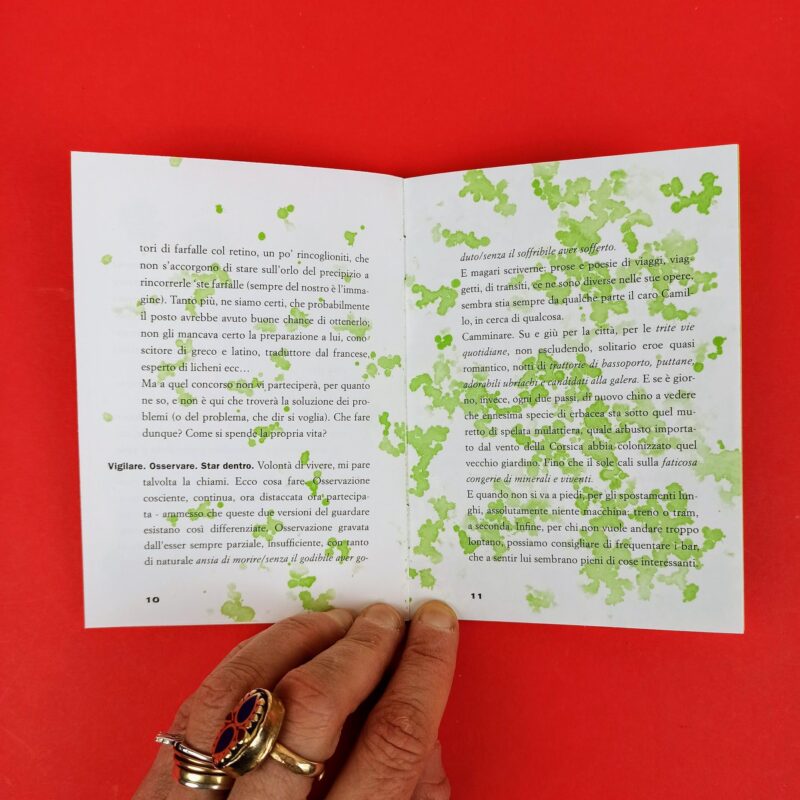 tori di farfalle col retino, un po' rincoglioniti, che
non s'accorgono di stare sull'orlo del precipizio a
rincorrerle 'ste farfalle (sempre del nostro è l'imma-
gine). Tanto più, ne siamo certi, che probabilmente
il posto avrebbe avuto buone chance di ottenerlo:
non gli mancava certo la preparazione a lui, cono-
scitore di greco e latino, traduttore dal francese,
esperto di licheni ecc…
Ma a quel concorso non vi parteciperà, per quanto
ne so, e non è qui che troverà la soluzione dei pro-
blemi (o del problema, che dir si voglia). Che fare
dunque? Come si spende la propria vita?
Vigilare. Osservare. Star dentro. Volontà di vivere, mi pare
talvolta la chiami. Ecco cosa fare. Osservazione
cosciente, continua, ora distaccata ora partecipa-
ta - ammesso che queste due versioni del guardare
esistano così differenziate. Osservazione gravata
dall'esser sempre parziale, insufficiente, con tanto
di naturale ansia di morire/senza il godibile aver go-
10
duto/senza il soffribile aver sofferto.
E magari scriverne: prose e poesie di viaggi, viag-
getti, di transiti, ce ne sono diverse nelle sue opere,
sembra stia sempre da qualche parte il caro Camil-
lo, in cerca di qualcosa.
Camminare. Su e giù per la città, per le trite vie
quotidiane, non escludendo, solitario eroe quasi
romantico, notti di trattorie di bassoporto, puttane,
adorabili ubriachi e candidati alla galera. E se è gior-
no, invece, ogni due passi, di nuovo chino a vedere
che ennesima specie di erbacea sta sotto quel mu-
retto di spelata mulattiera, quale arbusto importa-
to dal vento della Corsica abbia colonizzato quel
vecchio giardino. Fino che il sole cali sulla faticosa
congerie di minerali e viventi.
E quando non si va a piedi, per gli spostamenti lun-
ghi, assolutamente niente macchina: treno o tram,
a seconda. Infine, per chi non vuole andare troppo
lontano, possiamo consigliare di frequentare i bar,
che a sentir lui sembrano pieni di cose interessanti,
11